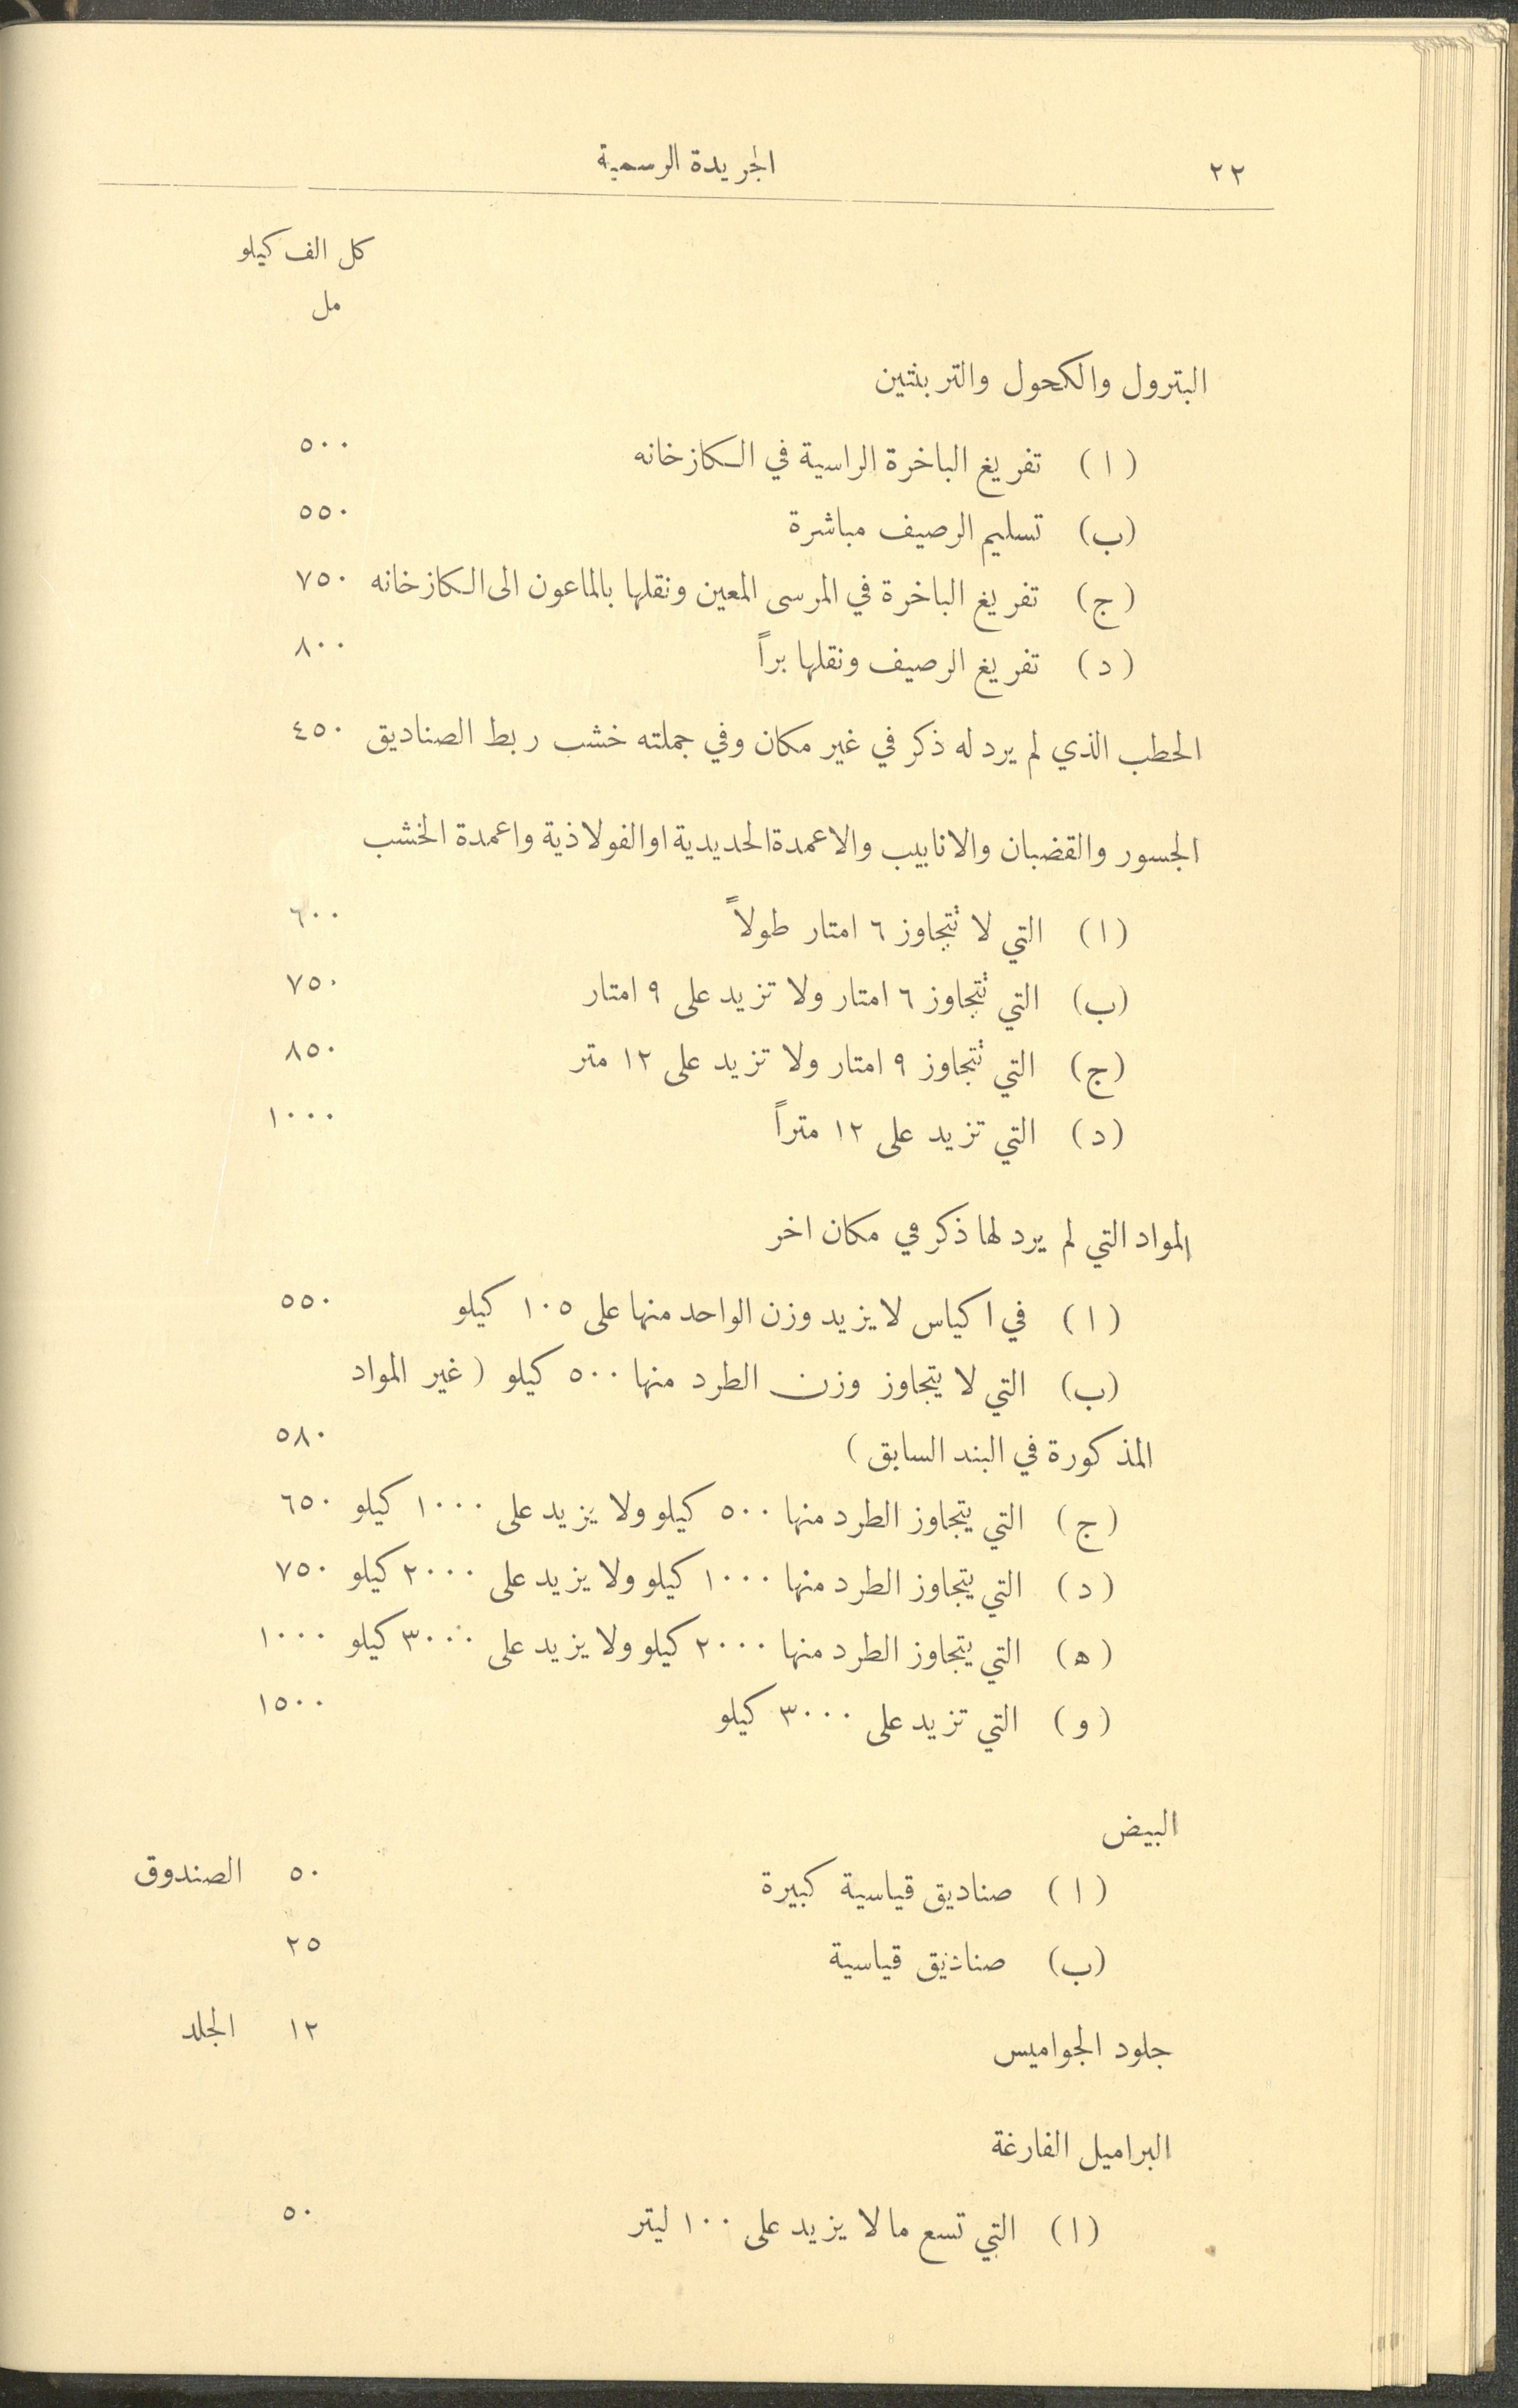 ٢٢ الجريدة الرسمية
كل الف كيلو
مل
البترول والكحول والتربنتين
(ا) تفريغ الباخرة الراسية في الكازخانه ٥٠٠
(ب) تسليم الرصيف مباشرة ٥٥٠
(ج) تفريغ الباخرة في المرسى المعين ونقلها بالماعون الى الكازخانه ٧٥٠
(د) تفريغ الرصيف ونقلها براً ٨٠٠
الحطب الذي لم يرد له ذكر في غير مكان وفي جملته خشب ربط الصناديق ٤٥٠
الجسور والقضبان والانابيب والاعمدة الحديدية او الفولاذية واعمدة الخشب
(ا) التي لا تتجاوز ٦ امتار طولاً ٦٠٠
(ب) التي تتجاوز ٦ امتار ولا تزيد على ٩ امتار ٧٥٠
(ج) التي تتجاوز ٩ امتار ولا تزيد على ١٢ متر ٨٥٠
(د) التي تزيد على ١٢ متراً ١٠٠٠
المواد التي لم يرد لها ذكر في مكان اخر
(ا) في اكياس لا يزيد وزن الواحد منها على ١٠٥ كيلو ٥٥٠
(ب) التي لا يتجاوز وزن الطرد منها ٥٠٠ كيلو (غير المواد
المذكورة في البند السابق) ٥٨٠
(ج) التي يتجاوز الطرد منها ٥٠٠ كيلو ولا يزيد على ١٠٠٠ كيلو ٦٥٠
(د) التي يتجاوز الطرد منها ١٠٠٠ كيلو ولا يزيد على ٢٠٠٠ كيلو ٧٥٠
(ه) التي يتجاوز الطرد منها ٢٠٠٠ كيلو ولا يزيد على ٣٠٠٠ كيلو ١٠٠٠
(و) التي تزيد على ٣٠٠٠ كيلو ١٥٠٠
البيض
(ا) صناديق قياسية كبيرة ٥٠ الصندوق
(ب) صناديق قياسية ٢٥
جلود الجواميس ١٢ الجلد
البراميل الفارغة
(ا) التي تسع ما لا يزيد على ١٠٠ ليتر ٥٠